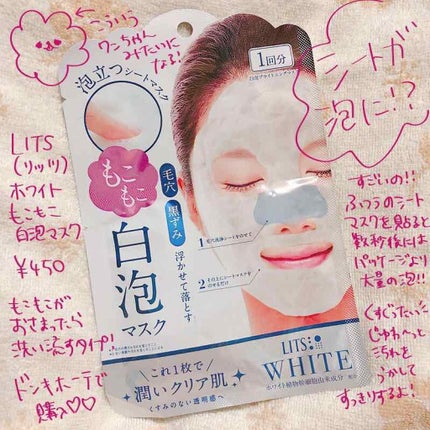 こういう
ワンちゃん
みたいに
なる!
シートが
泡に!?
LITS
(リッツ)
ホワイト
もこもこ
白泡マスク
¥450
もこもこが
おさまったら
洗い流すタイプ!
ドンキホーテで
購入♡♡
泡立つシートマスク
1回分
もこもこ
毛穴
黒ずみ
浮かせて落とす
白泡
マスク
1 毛穴洗浄シートをのせて
2 1の上にシートマスクを
のせるだけ
これ1枚で
潤いクリア肌
くすみのない透明感へ
LITS
WHITE
ホワイト植物幹細胞由来成分
すごいの!!
ふつうのシート
マスクを貼ると
数秒後には
パッケージより
大量の泡!!
くすぐったい♡
じゅわ〜っと
汚れを
うかして
すっきりするよ!